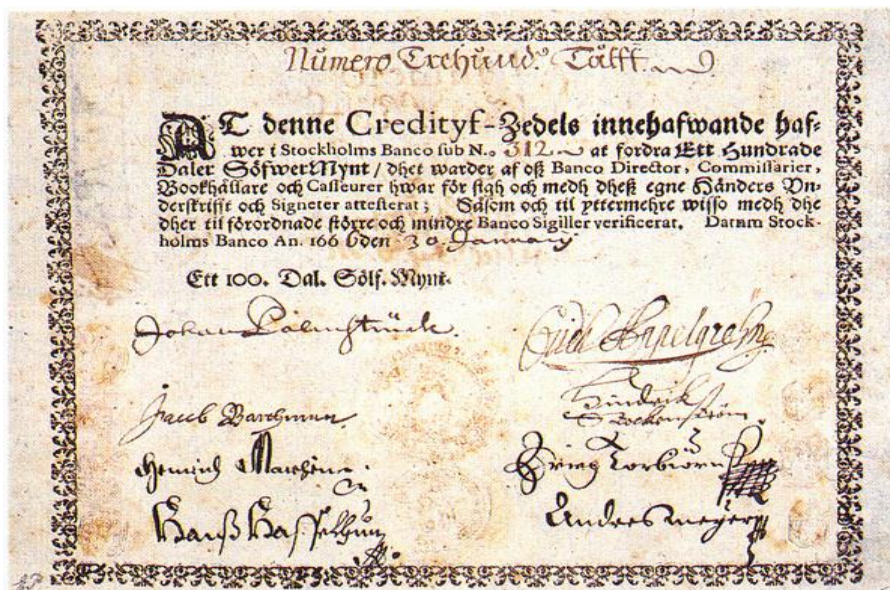 Numero Trehund: Tålfft
AT denne Credityf-Zedels innehafwande haf-
wer i Stockholms Banco sub N.o 312 at fordra Ett Hundrade
Daler SölfwerMynt / dhet warder af oß Banco Director, Commissarier,
Bookhållare och Casseurer hwar för sigh och medh dheß egne Händers Vn-
derskrifft och Signeter attesterat; Såsom och til yttermehre wisso medh dhe
dher til förordnade större och mindre Banco Sigiller verificerat. Datum Stock-
holms Banco An. 1666 den 30 January
Ett 100. Dal. Sölf. Mynt.
Johan Palmstruck
Jacob Barchman
Hindrick
Hans
Anders Meyer